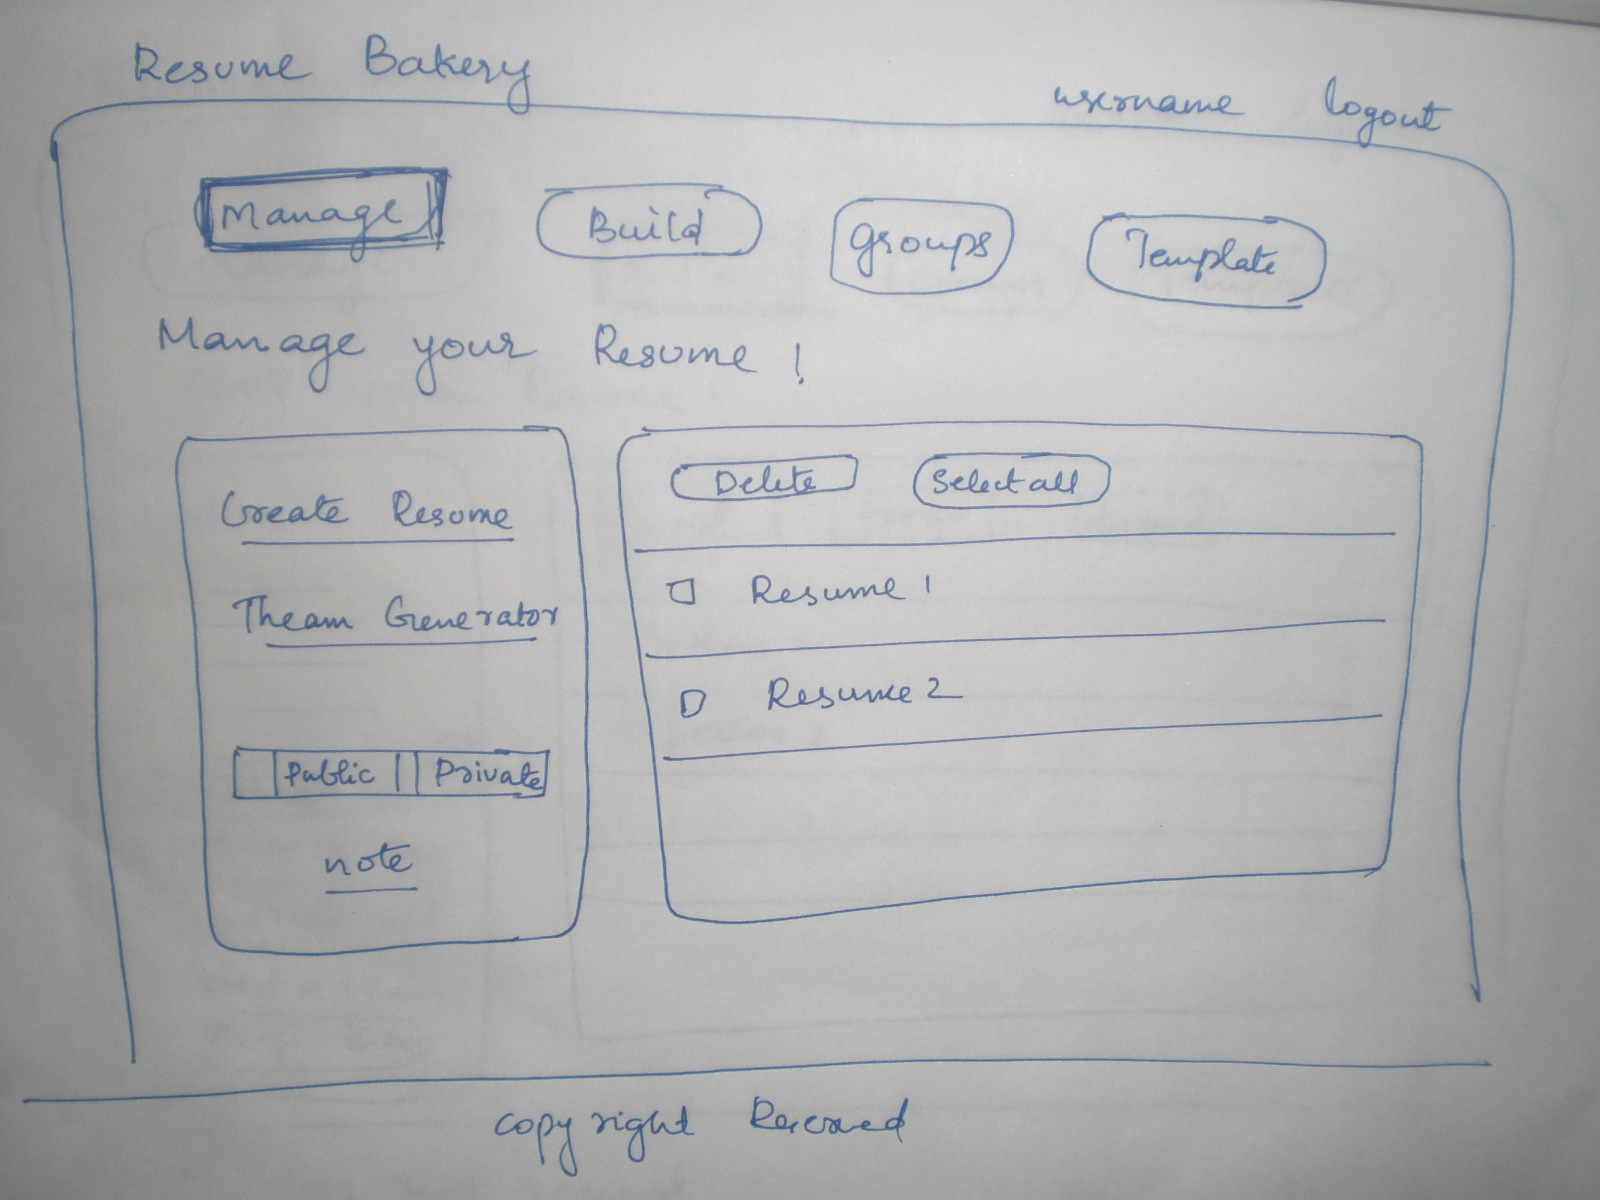 Resume Bakery
username logout
Manage Build Groups Template
Manage your Resume !
Create Resume
Theam Generator
Public Private
note
Delete Select all
Resume 1
Resume 2
copyright Reserved